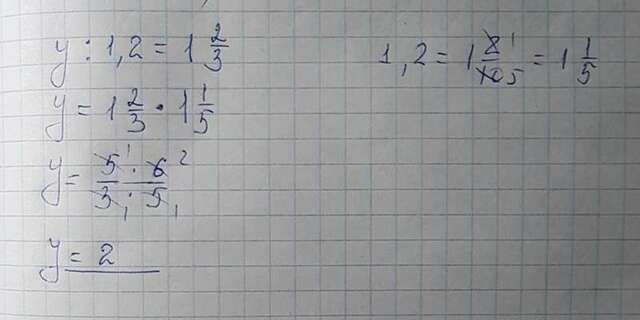 y : 1,2 = 1 2/3
y = 1 2/3 · 1 1/5
y = 5¹ · 6² / 3₁ · 5₁
y = 2
1,2 = 1 2¹/10 5 = 1 1/5